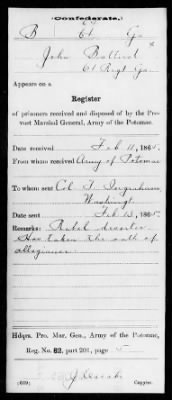 Confederate.
B 61 Ga
John Bullird
61 Regt Ga
Appears on a
Register
of prisoners received and disposed of by the Pro-
vost Marshal General, Army of the Potomac.
Date received Feb 11, 1865.
From whom received Army of Potomac
To whom sent Col T. Ingraham
Washingt
Date sent Feb 13, 1865.
Remarks: Rebel deserter
Has taken the oath of
allegiance
Hdqrs. Pro. Mar. Gen., Army of the Potomac,
Reg. No. 82, part 201, page 5
(639) Copyist.